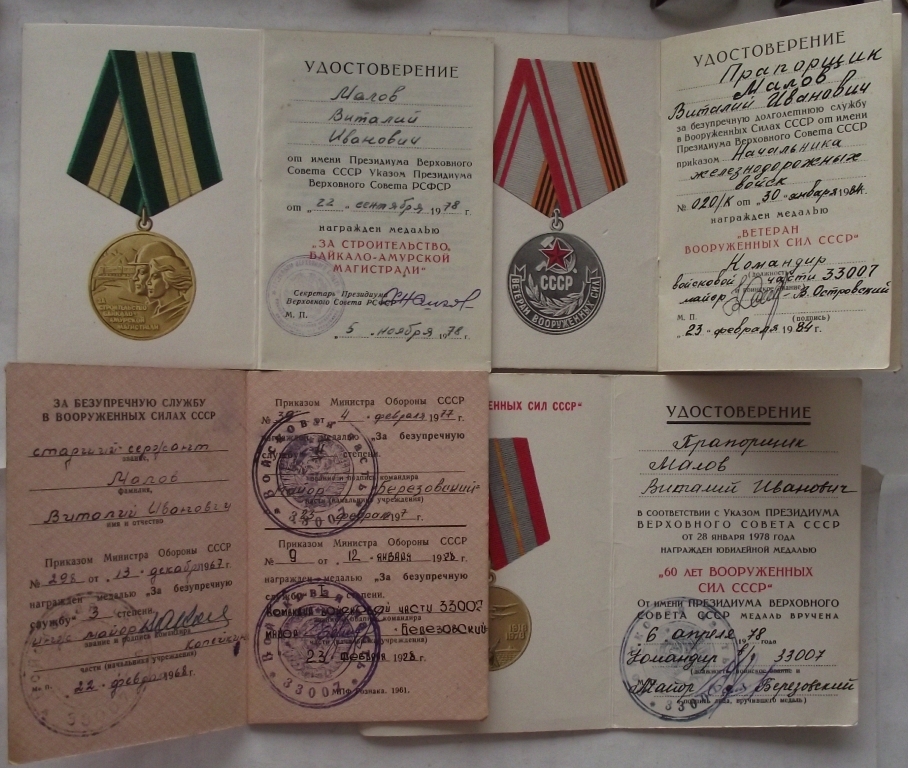 УДОСТОВЕРЕНИЕ
Малов
Виталий
Иванович
от имени Президиума Верховного
Совета СССР Указом Президиума
Верховного Совета РСФСР
от „22„ сентября 1978 г.
награжден медалью
"ЗА СТРОИТЕЛЬСТВО
БАЙКАЛО-АМУРСКОЙ
МАГИСТРАЛИ"
Секретарь Президиума
Верховного Совета РСФСР
М. П.
„5„ ноября 1978 г.
ЗА
СТРОИТЕЛЬСТВО
БАЙКАЛО-
АМУРСКОЙ
МАГИСТРАЛИ
УДОСТОВЕРЕНИЕ
Прапорщик
Малов
Виталий Иванович
за безупречную долголетнюю службу
в Вооруженных Силах СССР от имени
Президиума Верховного Совета СССР
приказом Начальника
железнодорожных
войск
№ 020/К от „30„ января 1984г.
награжден медалью
"ВЕТЕРАН
ВООРУЖЕННЫХ СИЛ СССР"
Командир
войсковой части 33007
майор В. Островский
М. П. (подпись)
„23„ февраля 1984 г.
СССР
ВЕТЕРАН ВООРУЖЕННЫХ СИЛ
ЗА БЕЗУПРЕЧНУЮ СЛУЖБУ
В ВООРУЖЕННЫХ СИЛАХ СССР
старший сержант
звание,
Малов
фамилия,
Виталий Иванович
имя и отчество
Приказом Министра Обороны СССР
№ 298 от „13„ декабря 1967 г.
награжден медалью „За безупречную
службу" 3 степени.
майор
звание и подпись командира
части (начальника учреждения)
М.П. „22„ февраля 1968 г.
Приказом Министра Обороны СССР
№ от 4 февраля 1977
награжден медалью „За безупречную
службу" степени.
звание и подпись командира
майор Березовский
части (начальника учреждения)
23 февраля 197 г.
ВОЙСКОВАЯ ЧАСТЬ
33007
Приказом Министра Обороны СССР
№ 9 от 12 января 1978 г.
награжден медалью „За безупречную
службу" степени.
Командир войсковой части 33007
звание и подпись командира
майор Березовский
части (начальника учреждения)
23 февраля 1978 г.
33007
МПФ Гознака. 1961.
ЕННЫХ СИЛ СССР"
УДОСТОВЕРЕНИЕ
Прапорщик
Малов
Виталий Иванович
В СООТВЕТСТВИИ С УКАЗОМ ПРЕЗИДИУМА
ВЕРХОВНОГО СОВЕТА СССР
ОТ 28 ЯНВАРЯ 1978 ГОДА
НАГРАЖДЕН ЮБИЛЕЙНОЙ МЕДАЛЬЮ
"60 ЛЕТ ВООРУЖЕННЫХ
СИЛ СССР"
ОТ ИМЕНИ ПРЕЗИДИУМА ВЕРХОВНОГО
СОВЕТА СССР МЕДАЛЬ ВРУЧЕНА
6 апреля 1978 года
Командир 33007
Майор Березовский
(подпись лица, вручившего медаль)
1918
1978